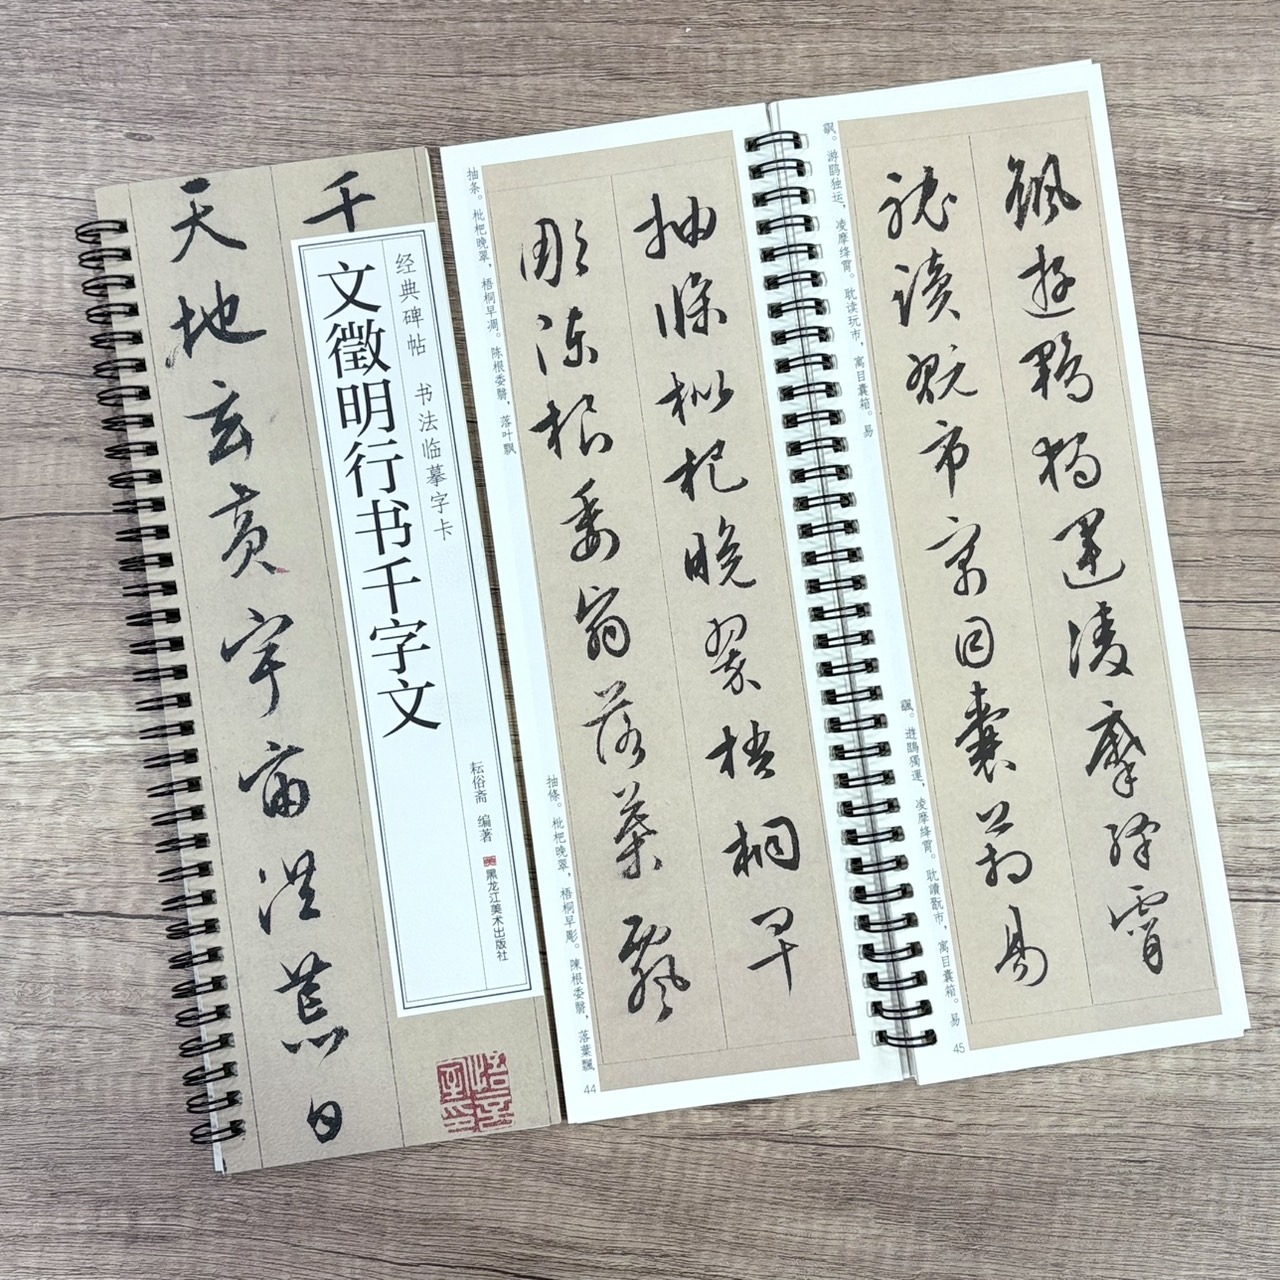 千
天地玄黄宇宙洪荒日
经典碑帖 书法临摹字卡
文徵明行书千字文
耘俗斋 编著
黑龙江美术出版社
抽条。枇杷晚翠，梧桐早凋。陈根委翳，落叶飘
抽條枇杷晚翠梧桐早
彫陳根委翳落葉飄
抽條。枇杷晚翠，梧桐早彫。陳根委翳，落葉飄
44
飖。游鹍独运，凌摩绛霄。耽读玩市，寓目囊箱。易
飖遊鵾獨運凌摩絳霄
耽讀翫市寓目囊箱易
飖。遊鵾獨運，凌摩絳霄。耽讀翫市，寓目囊箱。易
45